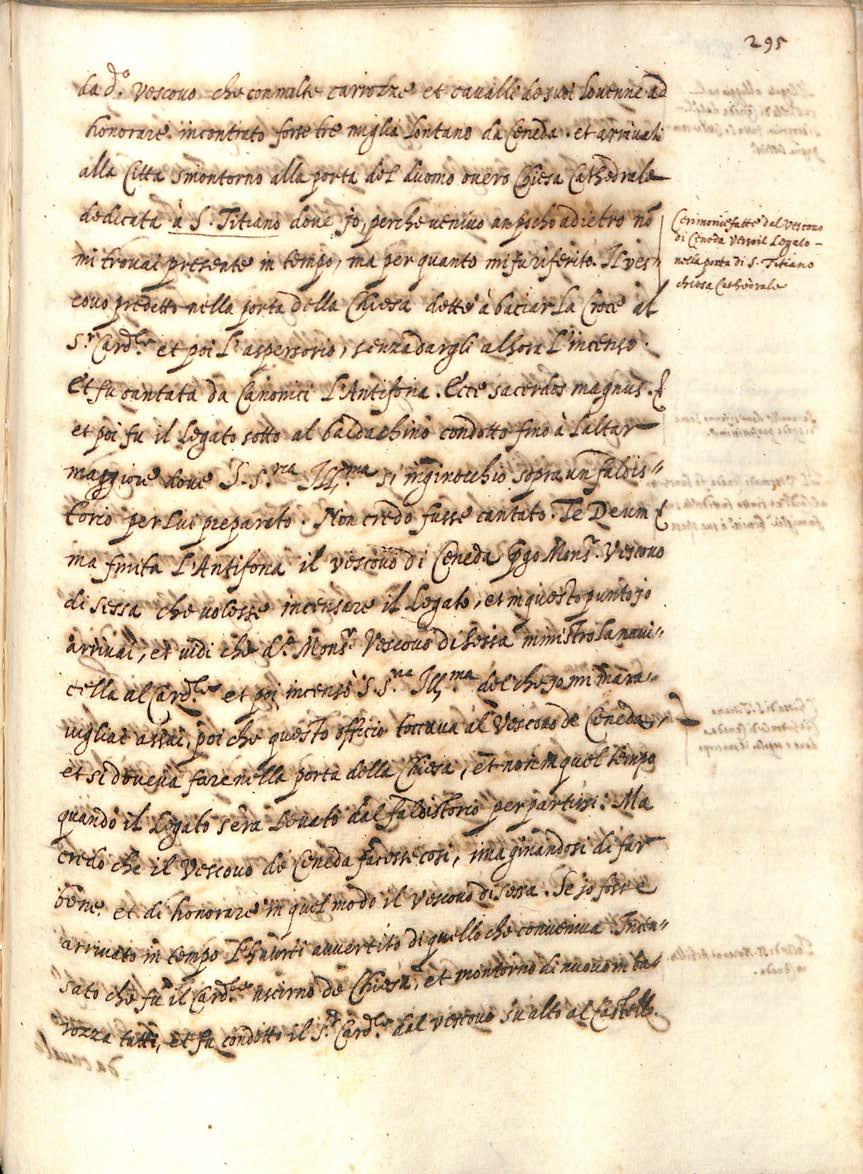 295
da d.º Vescovo che con molte carrozze et cavalli de suoi lo venne ad
honorare incontrato forse tre miglia lontano da Ceneda. et arrivati
alla Citta smontorno alla porta del duomo overo Chiesa Cathedrale
dedicata à S. Titiano dove jo, perche venivo un pocho adietro nõ
mi trovai presente in tempo, ma per quanto mi fu riferito. Il Ves-
covo predetto nella porta della Chiesa dette à baciar la Croce al
S.r Card.le et poi l'aspersorio, senza dargli alhora l'incenso.
Et fu cantata da Canonici l'Antifona. Ecce sacerdos magnus.
et poi fu il Legato sotto al baldachino condotto fino à l'altar
maggiore dove S. S.ria Ill.ma si inginocchio sopra un faldis-
torio per lui preparato. Non credo fusse cantato. Te Deum
ma finita l'Antifona il vescovo di Ceneda Mons.r Vescovo
di Sessa che volesse incensare il Legato, et in questo punto jo
arrivai, et vidi che d.º Mons.r Vescovo di Sessa ministro la navi-
cella al Card.le et poi incensò S. S.ria Ill.ma del che jo mi mara-
vigliai assai, poi che questo officio toccava al Vescovo de Ceneda,
et si doveva fare nella porta della Chiesa, et non in quel tempo
quando il Legato s'era levato dal faldistorio per partirsi. Ma
credo che il Vescovo de Ceneda facesse cosi, imaginandosi di far
bene. et di honorare in quel modo il vescovo di Sessa. Se jo fosse
arrivato in tempo l'haurei avvertito di quello che conveniva. Incen-
sato che fu il Card.le uscirno de Chiesa, et montorno di nuovo in ca-
rozza tutti, et fu condotto il S.r Card.le dal vescovo su alto al Castello.
Cerimonie fatte dal Vescovo
di Ceneda verso il Legato
nella porta di S. Titiano
chiesa Cathedrale